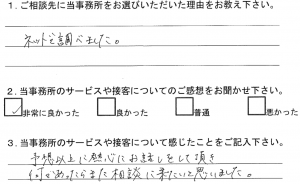 1．ご相談先に当事務所をお選びいただいた理由をお教え下さい。
ネットで調べました。
2．当事務所のサービスや接客についてのご感想をお聞かせ下さい。
非常に良かった 良かった 普通 悪かった
3．当事務所のサービスや接客について感じたことをご記入下さい。
予想以上に熱心にお話しをして頂き
何かあったらまた相談に来たいと思いました。